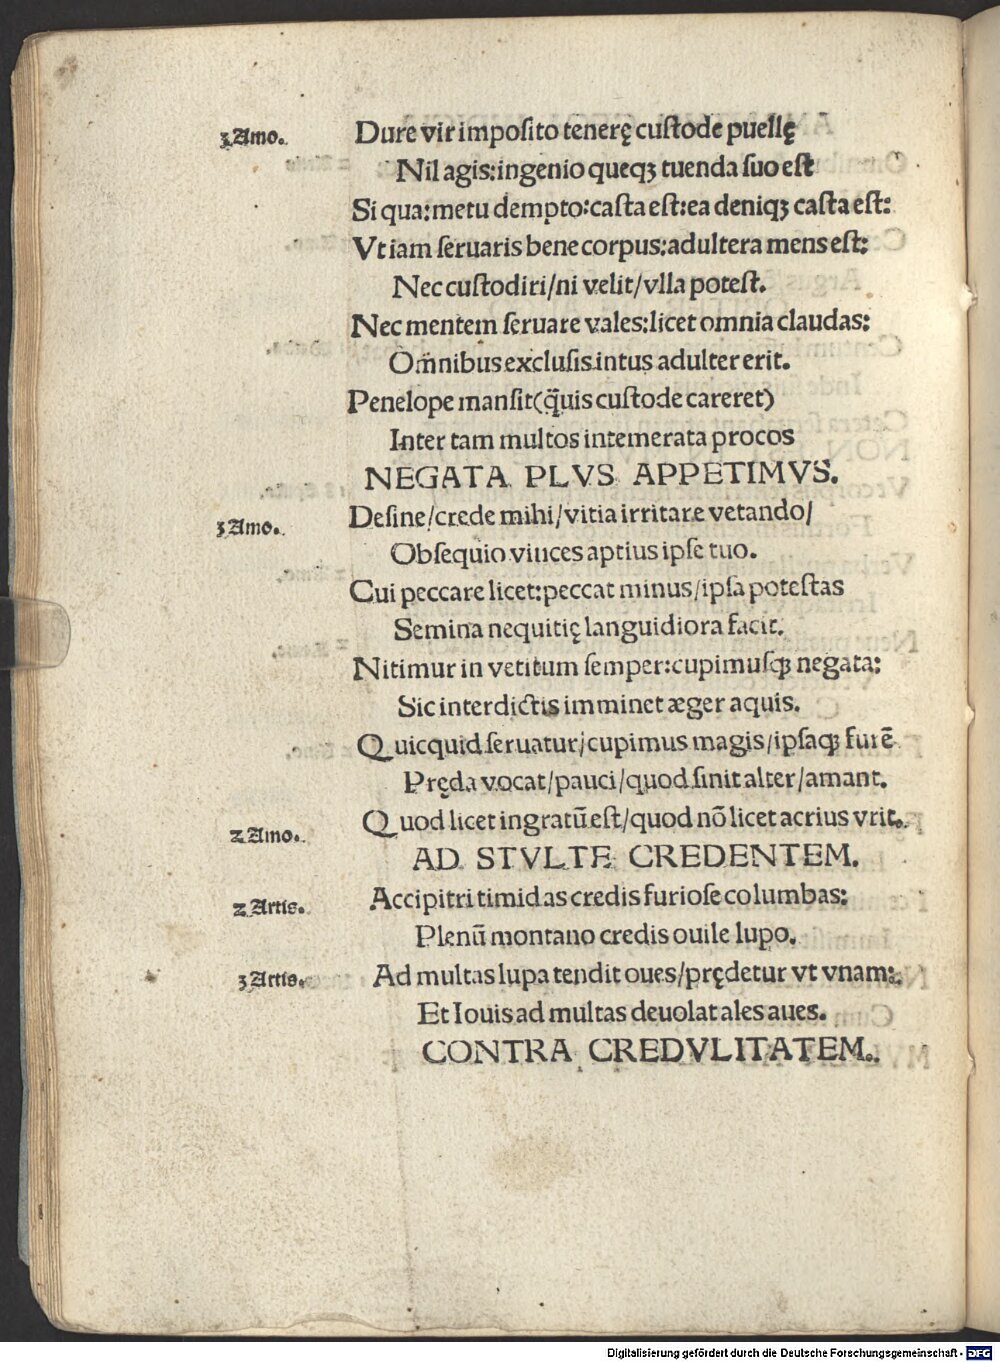 3 Amo. Dure vir imposito tenerę custode puellę
Nil agis: ingenio queqꝫ tuenda suo est
Si qua: metu dempto: casta est: ea deniqꝫ casta est:
Vt iam seruaris bene corpus: adultera mens est:
Nec custodiri/ni velit/vlla potest.
Nec mentem seruare vales: licet omnia claudas:
Om̄nibus exclusis intus adulter erit.
Penelope mansit (q̄uis custode careret)
Inter tam multos intemerata procos
NEGATA PLVS APPETIMVS.
3 Amo. Desine/crede mihi/vitia irritare vetando/
Obsequio vinces aptius ipse tuo.
Cui peccare licet: peccat minus/ipsa potestas
Semina nequitię languidiora facit.
Nitimur in vetitum semper: cupimusqꝫ negata:
Sic interdictis imminet æger aquis.
Quicquid seruatur/cupimus magis/ipsaqꝫ furē
Pręda vocat/pauci/quod sinit alter/amant.
2 Amo. Quod licet ingratū est/quod nō licet acrius vrit.
AD STVLTE CREDENTEM.
2 Artis. Accipitri timidas credis furiose columbas:
Plenū montano credis ouile lupo.
3 Artis. Ad multas lupa tendit oues/prędetur vt vnam:
Et Iouis ad multas deuolat ales aues.
CONTRA CREDVLITATEM.
Digitalisierung gefördert durch die Deutsche Forschungsgemeinschaft - DFG